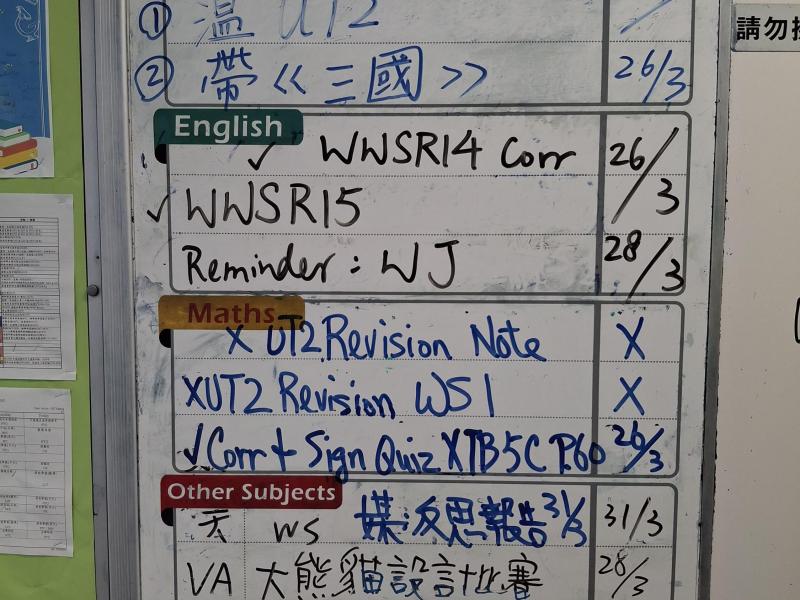 ① 溫 UT2
請勿
② 帶《三國》 26/3
English
✓ WWSR14 Corr 26/3
✓ WWSR15
Reminder: WJ 28/3
Maths
X UT2 Revision Note X
X UT2 Revision WS 1 X
✓ Corr + Sign Quiz X TB5C P.60 26/3
Other Subjects
WS 媒:反思報告 31/3 31/3
VA 大熊貓設計比賽 28/3